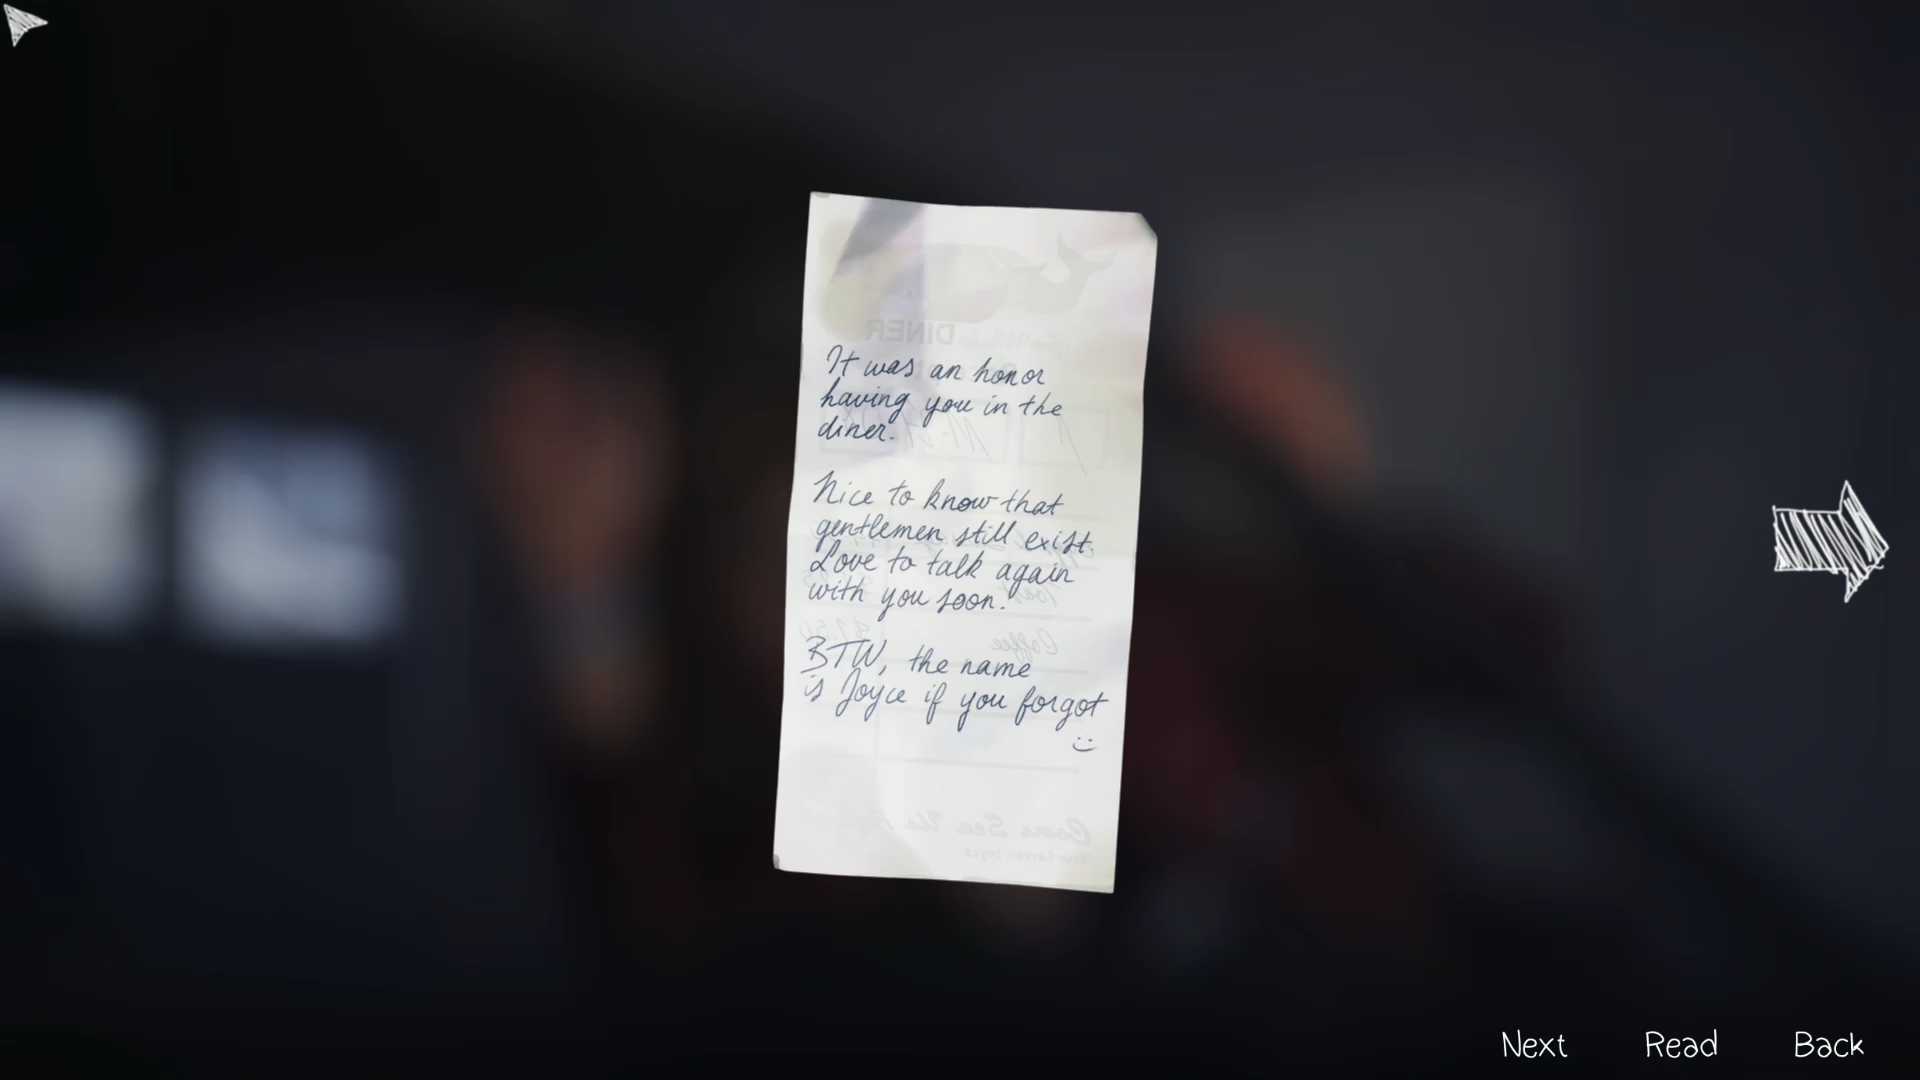 DINER
It was an honor
having you in the
diner.
Nice to know that
gentlemen still exist.
Love to talk again
with you soon.
Coffee
BTW, the name
is Joyce if you forgot
Come See Us
Next Read Back